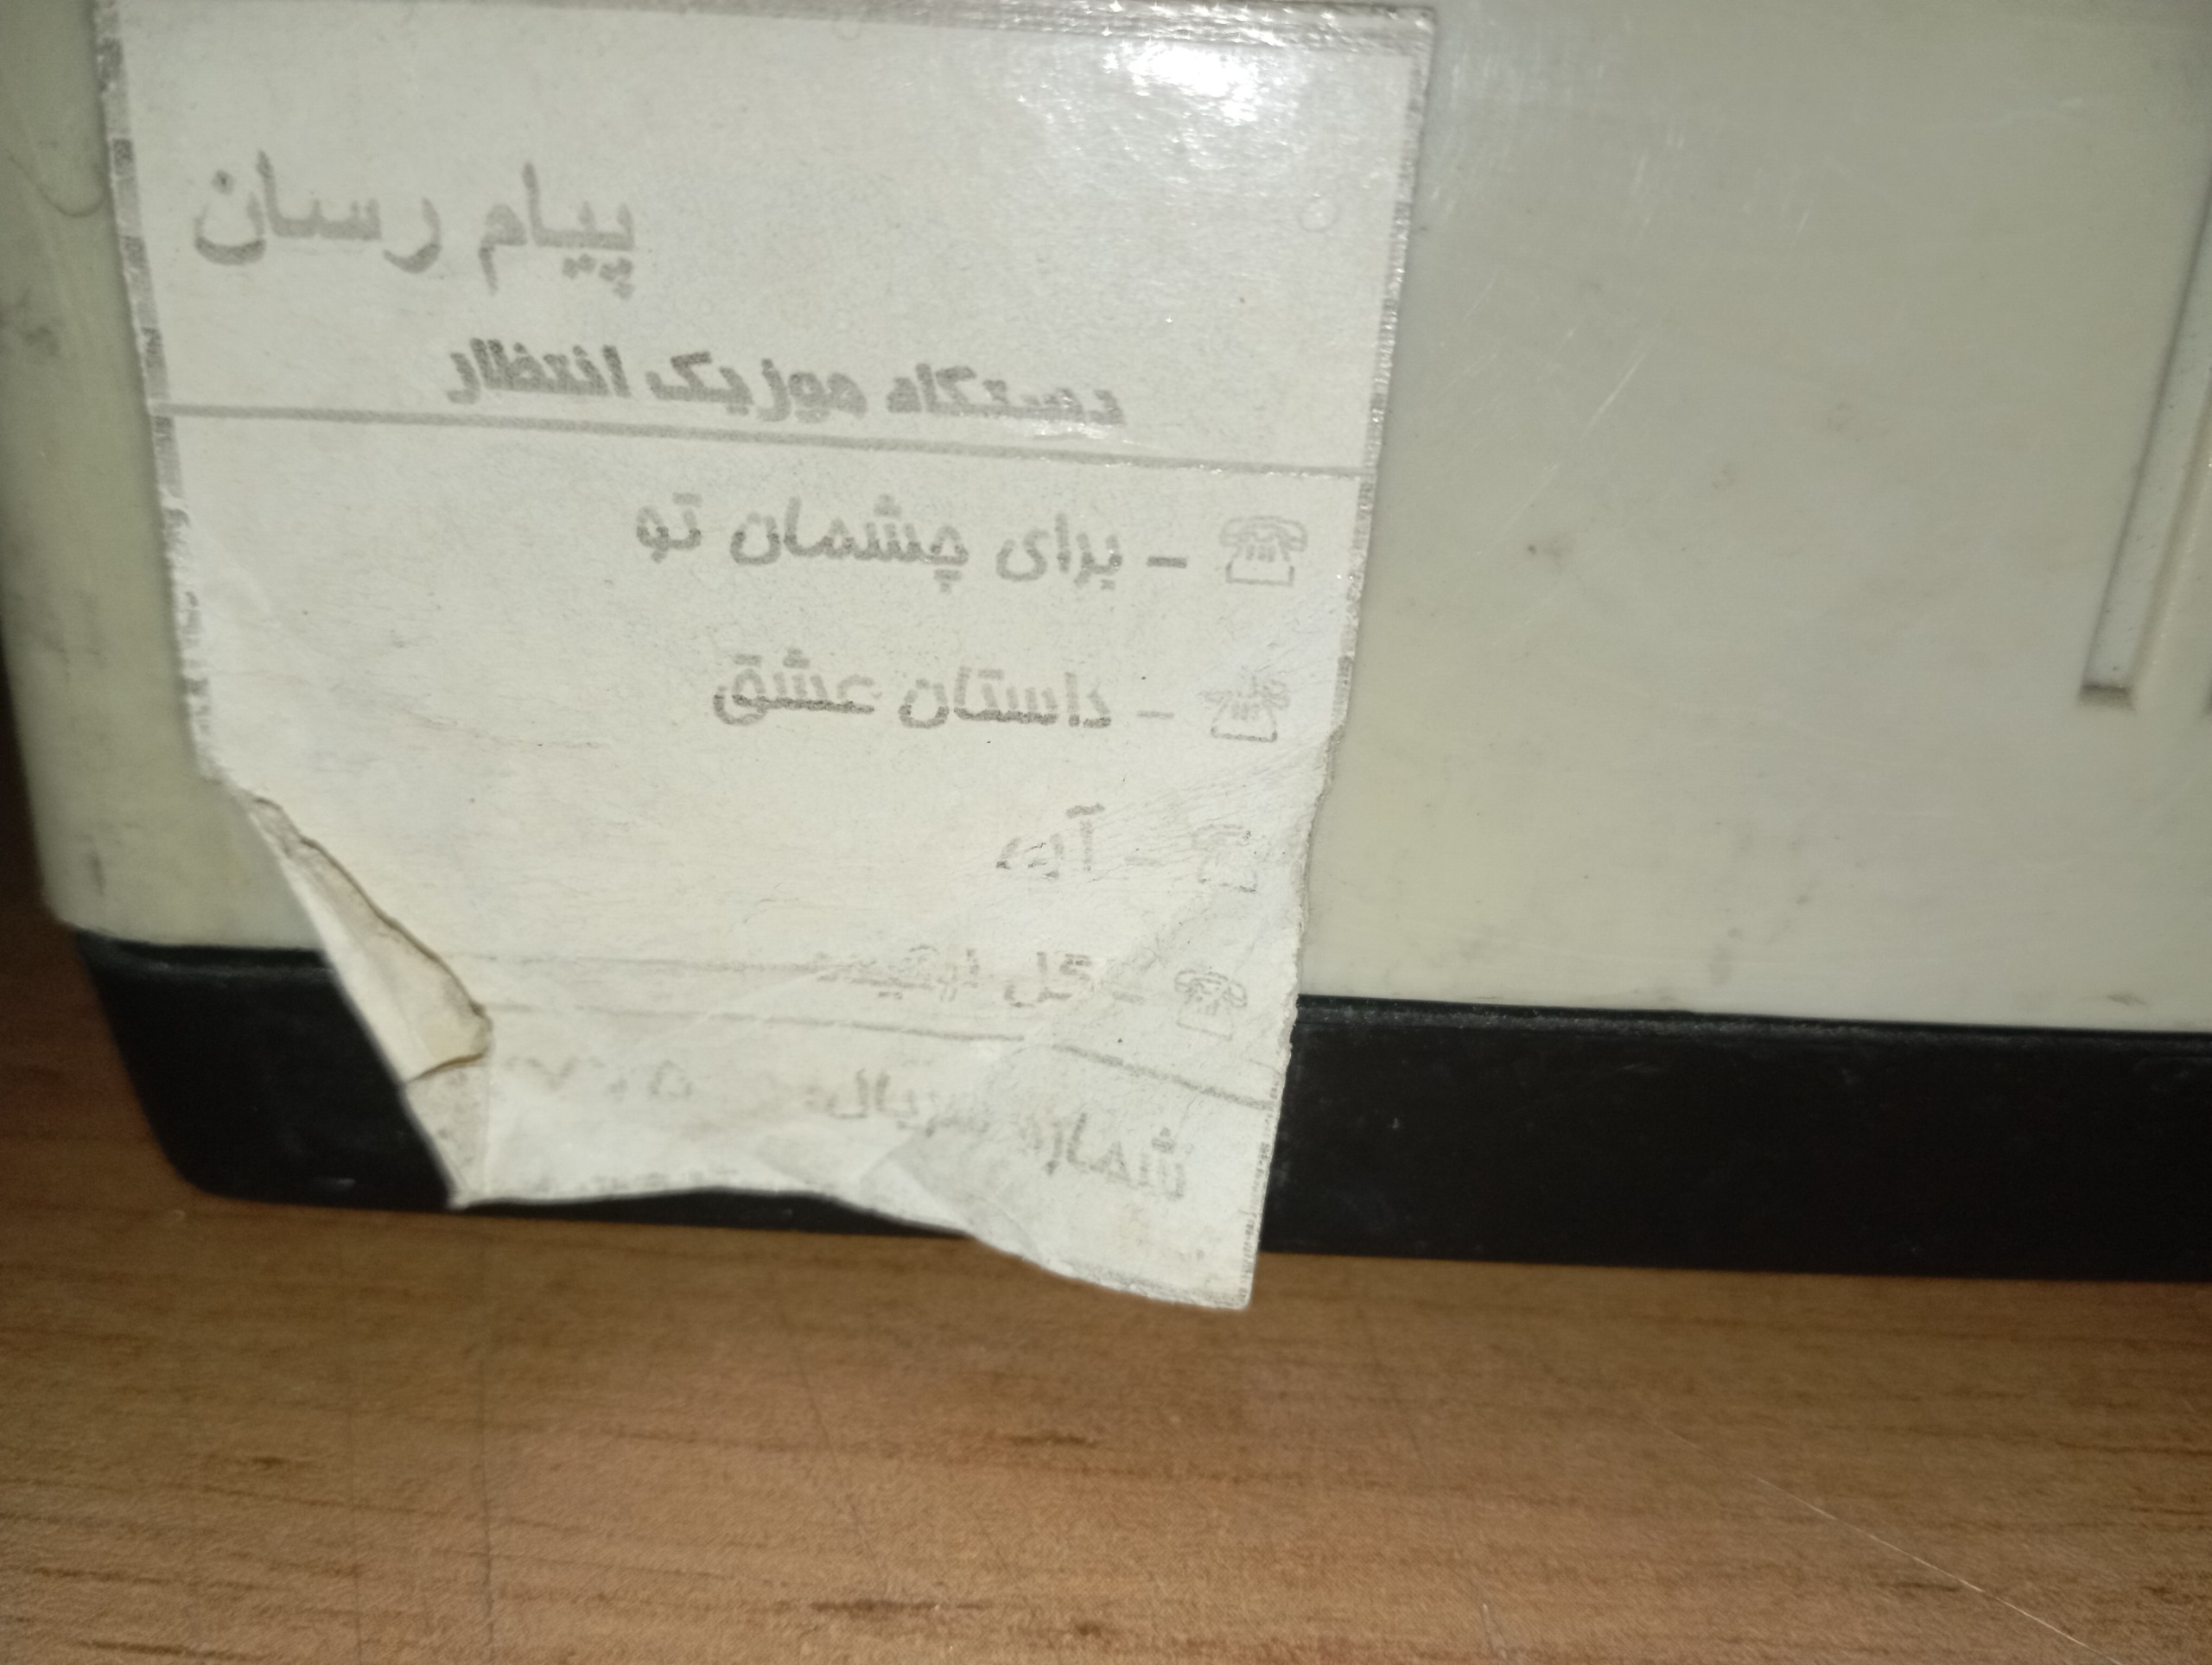 پیام رسان
دستگاه موزیک انتظار
☎ - برای چشمان تو
☎ - داستان عشق
☎ -
☎ - گل
شماره سریال: